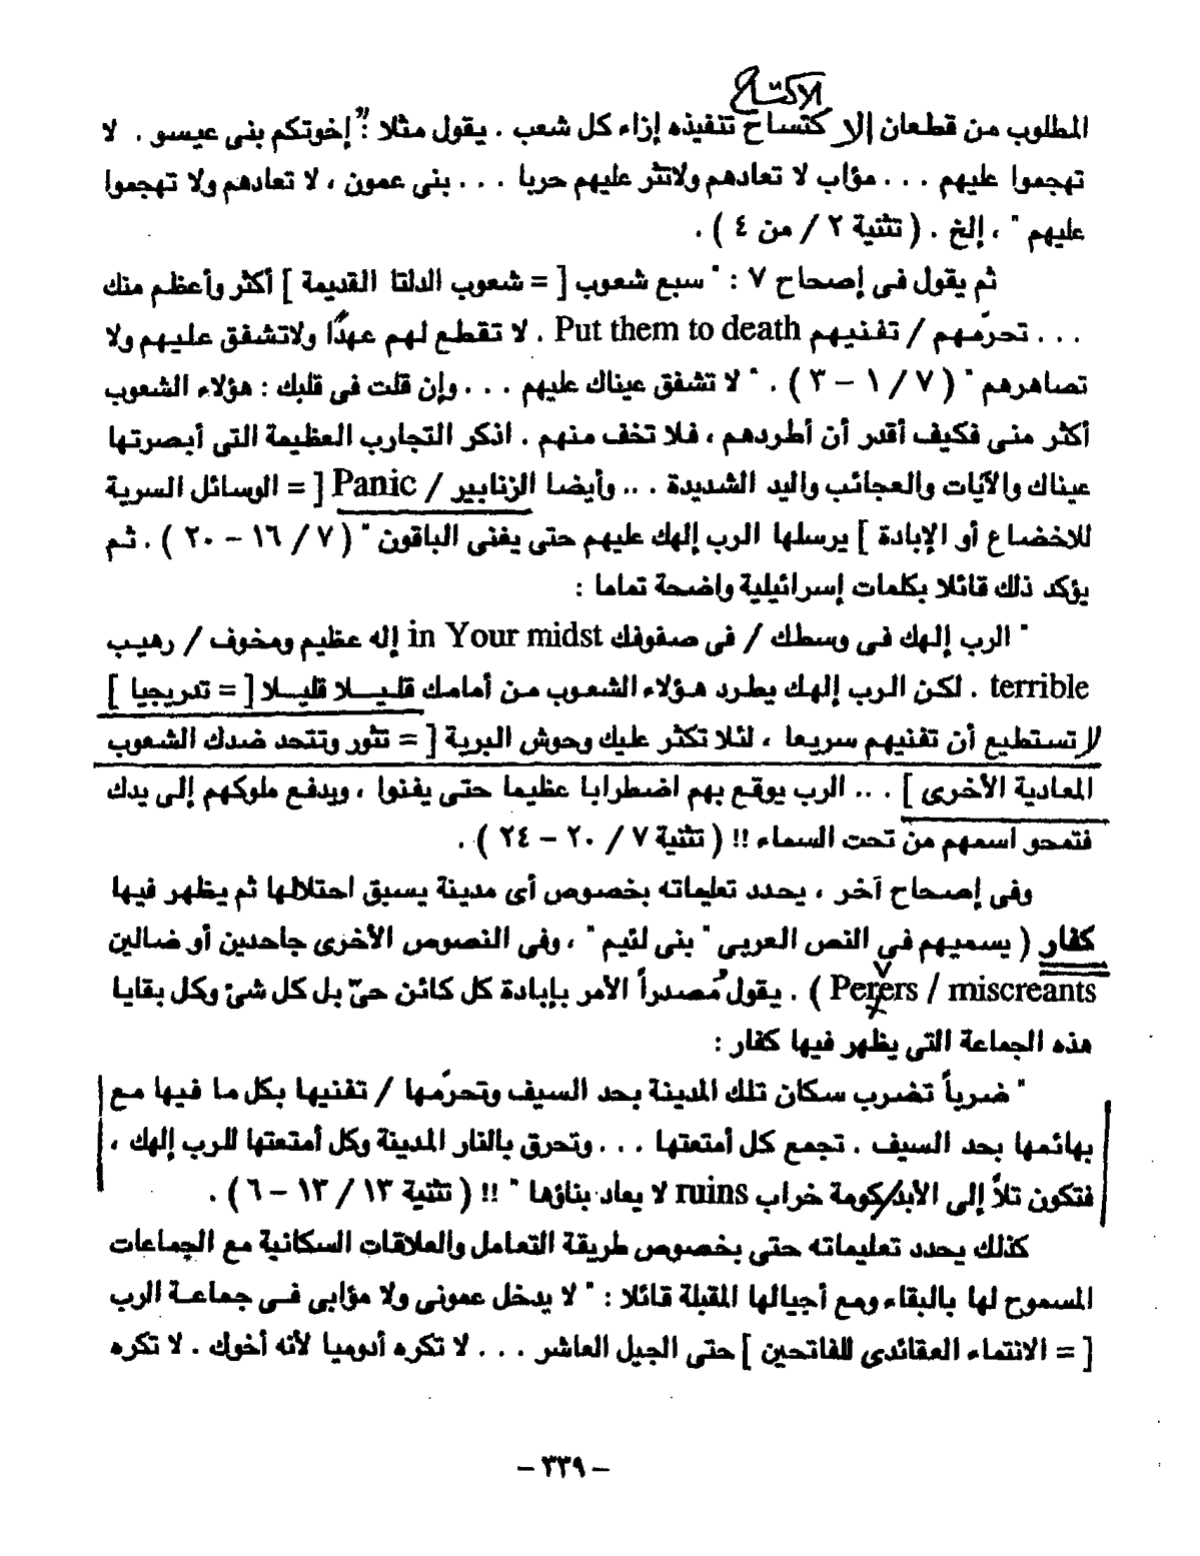 الاكتساح
المطلوب من قطعان الاكتساح تنفيذه إزاء كل شعب . يقول مثلا : " إخوتكم بنى عيسو . لا
تهجموا عليهم . . . مؤاب لا تعادهم ولاتثر عليهم حربا . . . بنى عمون ، لا تعادهم ولا تهجموا
عليهم " ، إلخ . ( تثنية ٢ / من ٤ ) .
ثم يقول فى إصحاح ٧ : " سبع شعوب [ = شعوب الدلتا القديمة ] أكثر وأعظم منك
. . . تحرّمهم / تفنيهم Put them to death . لا تقطع لهم عهدًا ولاتشفق عليهم ولا
تصاهرهم " ( ٧ / ١ – ٣ ) . " لا تشفق عيناك عليهم . . . وإن قلت فى قلبك : هؤلاء الشعوب
أكثر منى فكيف أقدر أن أطردهم ، فلا تخف منهم . اذكر التجارب العظيمة التى أبصرتها
عيناك والآيات والعجائب واليد الشديدة . .. وأيضا الزنابير / Panic [ = الوسائل السرية
للاخضاع أو الإبادة ] يرسلها الرب إلهك عليهم حتى يفنى الباقون " ( ٧ / ١٦ – ٢٠ ) . ثم
يؤكد ذلك قائلا بكلمات إسرائيلية واضحة تماما :
" الرب إلهك فى وسطك / فى صفوفك in Your midst إله عظيم ومخوف / رهيب
terrible . لكن الرب إلهك يطرد هؤلاء الشعوب من أمامك قليلا قليلا [ = تدريجيا ]
لا تستطيع أن تفنيهم سريعا ، لئلا تكثر عليك وحوش البرية [ = تثور وتتحد ضدك الشعوب
المعادية الأخرى ] . .. الرب يوقع بهم اضطرابا عظيما حتى يفنوا ، ويدفع ملوكهم إلى يدك
فتمحو اسمهم من تحت السماء !! ( تثنية ٧ / ٢٠ – ٢٤ ) .
وفى إصحاح آخر ، يحدد تعليماته بخصوص أى مدينة يسبق احتلالها ثم يظهر فيها
كفار ( يسميهم في النص العربى " بنى لئيم " ، وفى النصوص الأخرى جاحدين أو ضالين
Perers / miscreants ) . يقول مُصدراً الأمر بإبادة كل كائن حىّ بل كل شئ وكل بقايا
هذه الجماعة التى يظهر فيها كفار :
" ضرباً تضرب سكان تلك المدينة بحد السيف وتحرّمها / تفنيها بكل ما فيها مع
بهائمها بحد السيف . تجمع كل أمتعتها . . . وتحرق بالنار المدينة وكل أمتعتها للرب إلهك ،
فتكون تلاً إلى الأبد/كومة خراب ruins لا يعاد بناؤها " !! ( تثنية ١٣ / ١٣ – ٦ ) .
كذلك يحدد تعليماته حتى بخصوص طريقة التعامل والعلاقات السكانية مع الجماعات
المسموح لها بالبقاء ومع أجيالها المقبلة قائلا : " لا يدخل عمونى ولا مؤابى فى جماعة الرب
[ = الانتماء العقائدى للفاتحين ] حتى الجيل العاشر . . . لا تكره أدوميا لأنه أخوك . لا تكره
– ٣٣٩ –